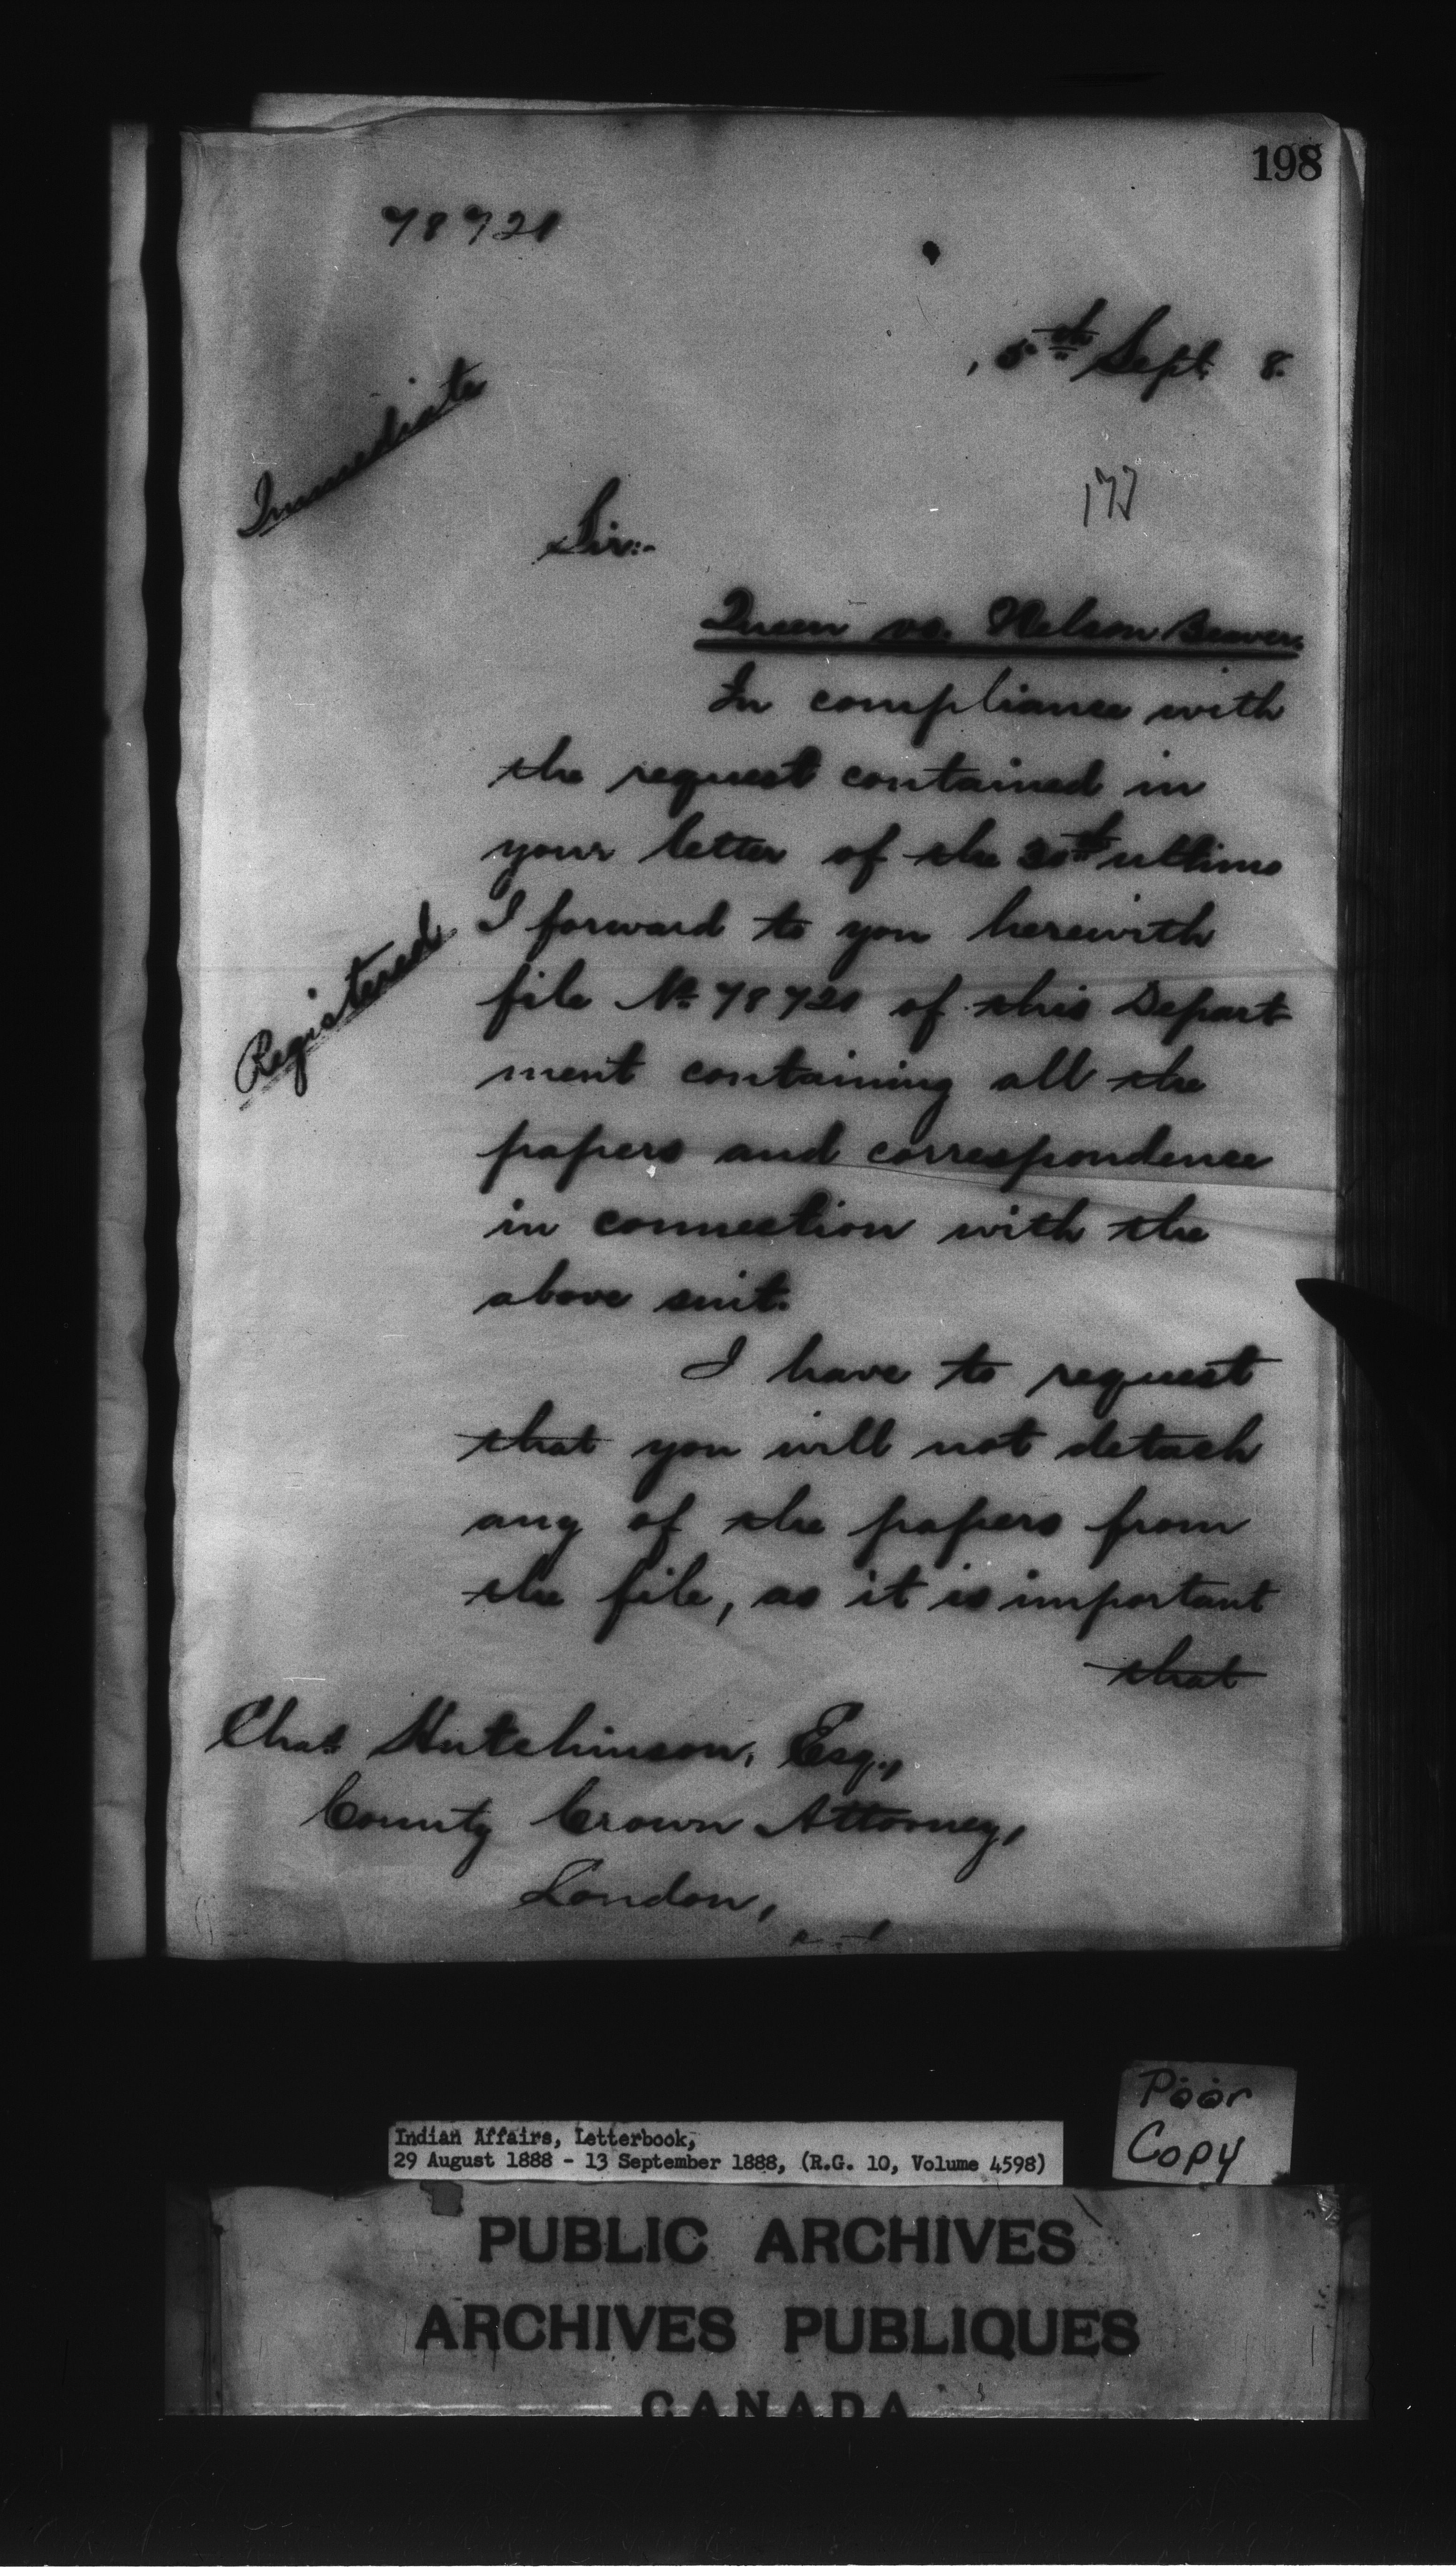 198
78721
5th Sept. 8.
Immediate
177
Sir:-
Queen vs. Nelson Beaver.
In compliance with
the request contained in
your letter of the 30th ultimo
I forward to you herewith
Registered
file No 78721 of this Depart
ment containing all the
papers and correspondence
in connection with the
above suit.
I have to request
that you will not detach
any of the papers from
the file, as it is important
that
Chas Hutchinson, Esq.,
County Crown Attorney,
London,
Poor
Copy
Indian Affairs, Letterbook,
29 August 1888 - 13 September 1888, (R.G. 10, Volume 4598)
PUBLIC ARCHIVES
ARCHIVES PUBLIQUES
CANADA